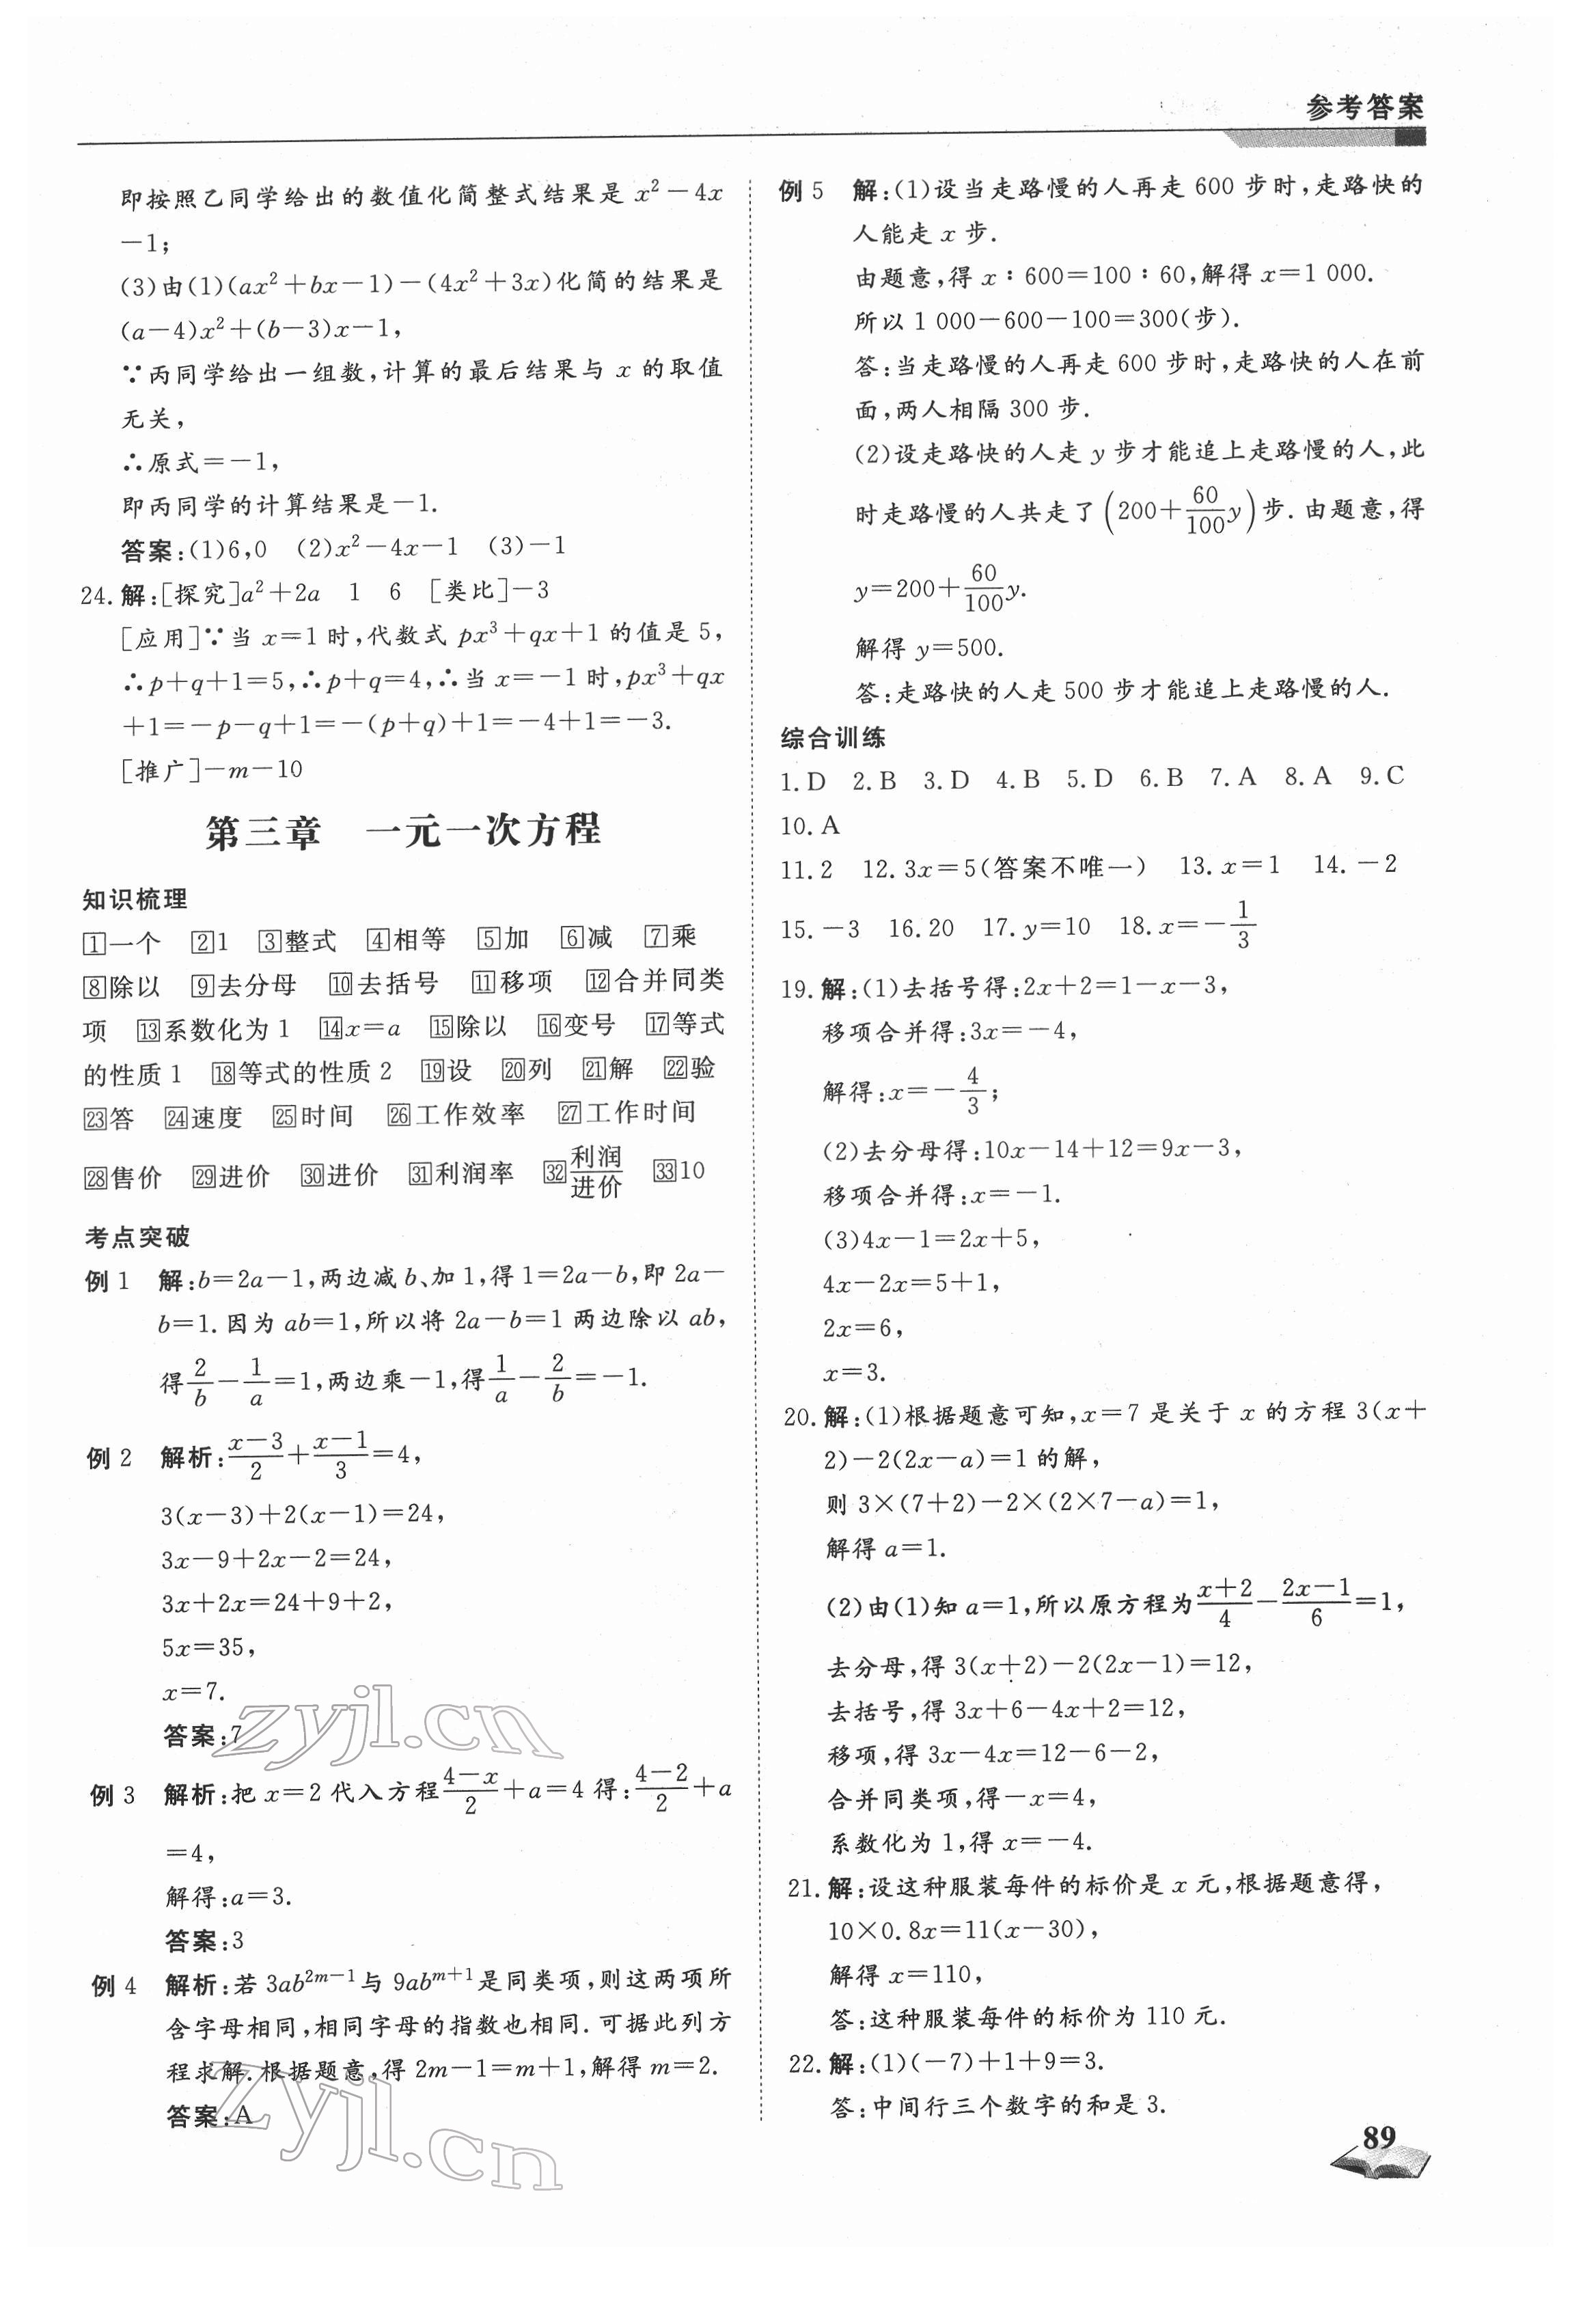 参考答案
即按照乙同学给出的数值化简整式结果是 x²－4x
－1;
(3)由(1)(ax²＋bx－1)－(4x²＋3x)化简的结果是
(a－4)x²＋(b－3)x－1,
∵丙同学给出一组数,计算的最后结果与 x 的取值
无关,
∴原式＝－1,
即丙同学的计算结果是－1.
答案:(1)6,0　(2)x²－4x－1　(3)－1
24. 解:[探究]a²＋2a　1　6　[类比]－3
[应用]∵当 x＝1 时,代数式 px³＋qx＋1 的值是 5,
∴p＋q＋1＝5,∴p＋q＝4,∴当 x＝－1 时,px³＋qx
＋1＝－p－q＋1＝－(p＋q)＋1＝－4＋1＝－3.
[推广]－m－10
第三章　一元一次方程
知识梳理
[1]一个　[2]1　[3]整式　[4]相等　[5]加　[6]减　[7]乘
[8]除以　[9]去分母　[10]去括号　[11]移项　[12]合并同类
项　[13]系数化为 1　[14]x＝a　[15]除以　[16]变号　[17]等式
的性质 1　[18]等式的性质 2　[19]设　[20]列　[21]解　[22]验
[23]答　[24]速度　[25]时间　[26]工作效率　[27]工作时间
[28]售价　[29]进价　[30]进价　[31]利润率　[32]利润/进价　[33]10
考点突破
例 1　解:b＝2a－1,两边减 b、加 1,得 1＝2a－b,即 2a－
b＝1. 因为 ab＝1,所以将 2a－b＝1 两边除以 ab,
得 2/b－1/a＝1,两边乘－1,得 1/a－2/b＝－1.
例 2　解析:(x－3)/2＋(x－1)/3＝4,
3(x－3)＋2(x－1)＝24,
3x－9＋2x－2＝24,
3x＋2x＝24＋9＋2,
5x＝35,
x＝7.
答案:7
zyjl.cn
例 3　解析:把 x＝2 代入方程(4－x)/2＋a＝4 得:(4－2)/2＋a
＝4,
解得:a＝3.
答案:3
例 4　解析:若 3ab^(2m－1)与 9ab^(m＋1)是同类项,则这两项所
含字母相同,相同字母的指数也相同. 可据此列方
程求解. 根据题意,得 2m－1＝m＋1,解得 m＝2.
答案:A
zyjl.cn
例 5　解:(1)设当走路慢的人再走 600 步时,走路快的
人能走 x 步.
由题意,得 x∶600＝100∶60,解得 x＝1 000.
所以 1 000－600－100＝300(步).
答:当走路慢的人再走 600 步时,走路快的人在前
面,两人相隔 300 步.
(2)设走路快的人走 y 步才能追上走路慢的人,此
时走路慢的人共走了(200＋60/100y)步. 由题意,得
y＝200＋60/100y.
解得 y＝500.
答:走路快的人走 500 步才能追上走路慢的人.
综合训练
1. D　2. B　3. D　4. B　5. D　6. B　7. A　8. A　9. C
10. A
11. 2　12. 3x＝5(答案不唯一)　13. x＝1　14. －2
15. －3　16. 20　17. y＝10　18. x＝－1/3
19. 解:(1)去括号得:2x＋2＝1－x－3,
移项合并得:3x＝－4,
解得:x＝－4/3;
(2)去分母得:10x－14＋12＝9x－3,
移项合并得:x＝－1.
(3)4x－1＝2x＋5,
4x－2x＝5＋1,
2x＝6,
x＝3.
20. 解:(1)根据题意可知,x＝7 是关于 x 的方程 3(x＋
2)－2(2x－a)＝1 的解,
则 3×(7＋2)－2×(2×7－a)＝1,
解得 a＝1.
(2)由(1)知 a＝1,所以原方程为(x＋2)/4－(2x－1)/6＝1,
去分母,得 3(x＋2)－2(2x－1)＝12,
去括号,得 3x＋6－4x＋2＝12,
移项,得 3x－4x＝12－6－2,
合并同类项,得－x＝4,
系数化为 1,得 x＝－4.
21. 解:设这种服装每件的标价是 x 元,根据题意得,
10×0.8x＝11(x－30),
解得 x＝110,
答:这种服装每件的标价为 110 元.
22. 解:(1)(－7)＋1＋9＝3.
答:中间行三个数字的和是 3.
89